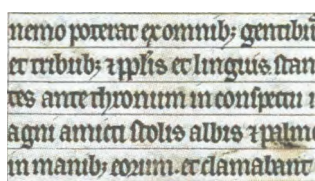 nemo poterat ex omnib; gentibꝰ
et tribub; ⁊ pplis et linguis stan
tes ante thronum in conspectu
agni amicti stolis albis ⁊ palme
in manib; eorum. et clamabant